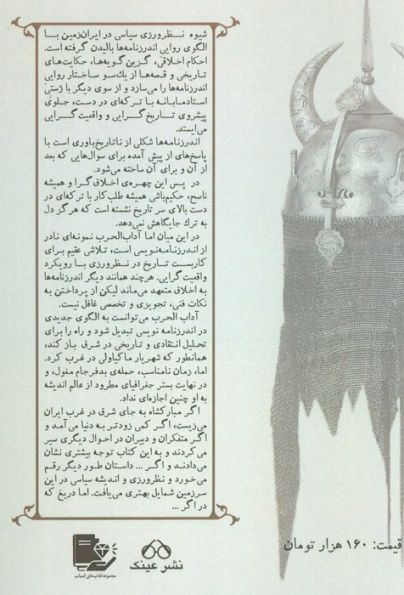 شیوه نظرورزی سیاسی در ایران‌زمین با
الگوی روایی اندرزنامه‌ها بالیدن گرفته است.
احکام اخلاقی، گزین‌گویه‌ها، حکایت‌های
تاریخی و قصه‌ها از یک‌سو ساختار روایی
اندرزنامه‌ها را می‌سازد و از سوی دیگر با ژستی
استادمابانه با ترکه‌ای در دست، جلوی
پیشروی تاریخ‌گرایی و واقعیت‌گرایی
می‌ایستد.
اندرزنامه‌ها شکلی از ناتاریخ‌باوری است با
پاسخ‌های از پیش آمده برای سوال‌هایی که بعد
از آن و برای آن ساخته می‌شود.
در پس این چهره‌ی اخلاق‌گرا و همیشه
ناصح، حکیم‌باشی همیشه طلب‌کار با ترکه‌ای در
دست بالای سر تاریخ نشسته است که هرگز دل
به ترك جایگاهش نمی‌دهد.
در این میان اما آداب‌الحرب نمونه‌ای نادر
از اندرزنامه‌نویسی است، تلاشی عقیم برای
کاربست تاریخ در نظرورزی با رویکرد
واقعیت‌گرایی. هرچند همانند دیگر اندرزنامه‌ها
به اخلاق متعهد می‌ماند لیکن از پرداختن به
نکات فنی، تجویزی و تخصصی غافل نیست.
آداب الحرب می‌توانست به الگوی جدیدی
در اندرزنامه نویسی تبدیل شود و راه را برای
تحلیل انتقادی و تاریخی در شرق باز کند،
همانطور که شهریار ماکیاولی در غرب کرد.
اما، زمان نامناسب، حمله‌ی بدفرجام مغول، و
در نهایت بستر جغرافیای مطرود از عالم اندیشه
به او چنین اجازه‌ای نداد.
اگر مبارکشاه به جای شرق در غرب ایران
می‌زیست، اگر کمی زودتر به دنیا می‌آمد و
اگر متفکران و دبیران در احوال دیگری سیر
می‌کردند و به این کتاب توجه بیشتری نشان
می‌دادند و اگر ... داستان طور دیگر رقم
می‌خورد و نظرورزی و اندیشه سیاسی در این
سرزمین شمایل بهتری می‌یافت. اما دریغ که
در اگر ...
قیمت: ۱۶۰ هزار تومان
نشر عینک
مجموعه کتاب‌های کمیاب